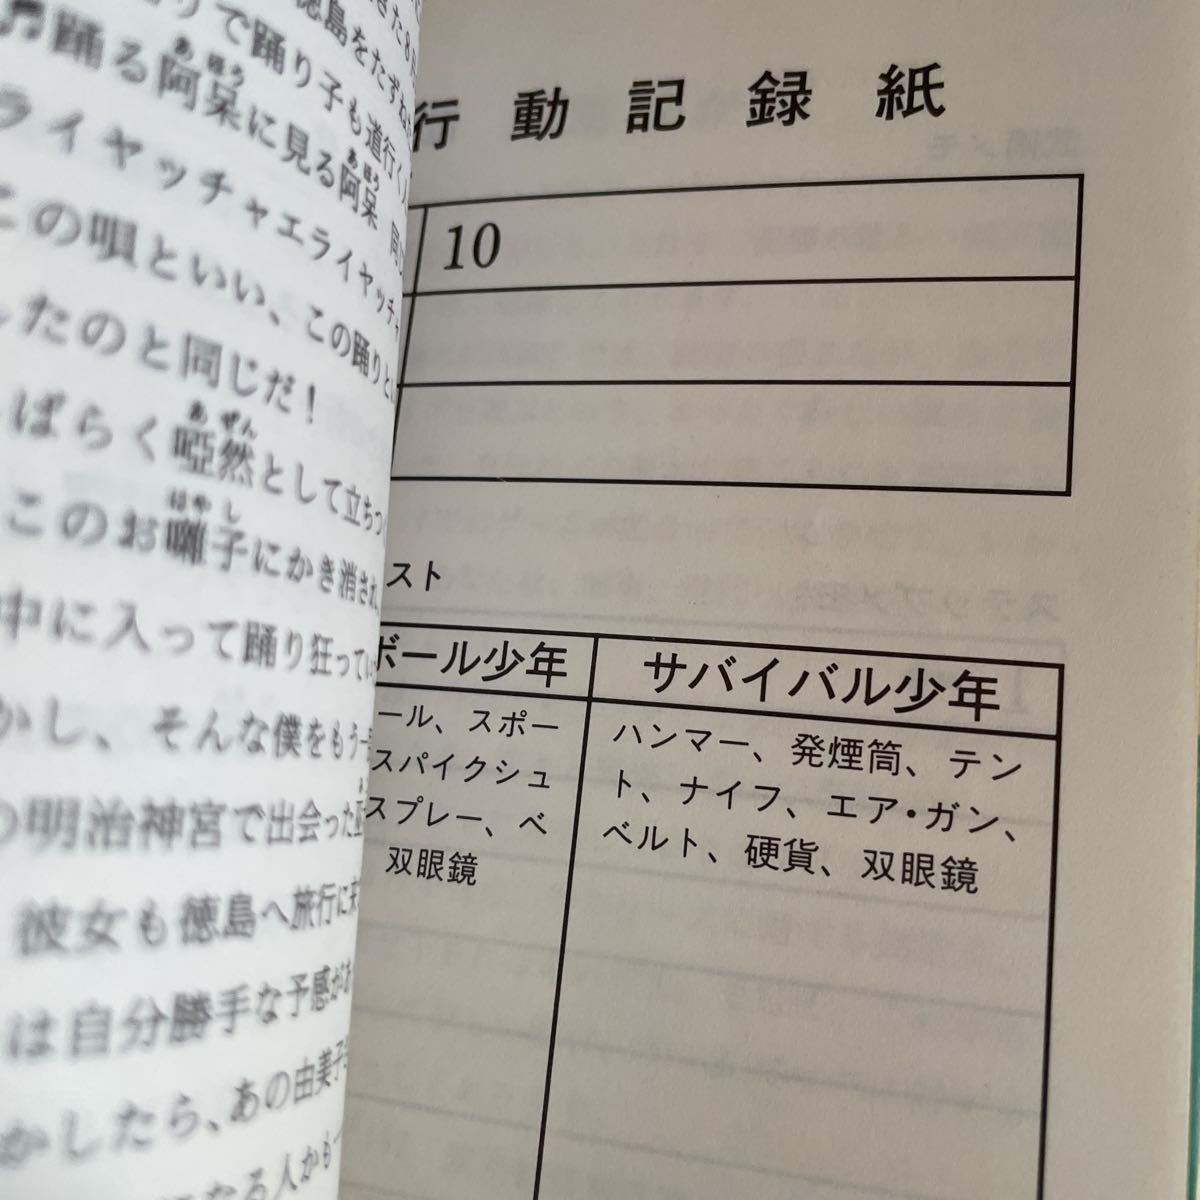 行動記録紙
10
スト
ボール少年
サバイバル少年
ール、スポー
スパイクシュ
スプレー、ベ
双眼鏡
ハンマー、発煙筒、テン
ト、ナイフ、エア・ガン、
ベルト、硬貨、双眼鏡
徳島をたずね
りで踊り子も道行く
踊る阿呆に見る阿呆 同じ
あほう
あほう
ライヤッチャエライヤッチャ
この唄といい、この踊りとい
したのと同じだ!
ばらく啞然として立ちつ
あぜん
このお囃子にかき消され
はやし
中に入って踊り狂ってい
かし、そんな僕をもう一
の明治神宮で出会った
彼女も徳島へ旅行に
は自分勝手な予感が
かしたら、あの由美子
なる人かも